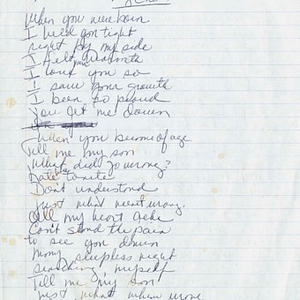 When you were born
I held you tight
right by my side
I felt
I love you so
I saw your growth
I been so proud
You let me down
When you become of age
Tell me my son
What did go wrong?
Don't understand
Just what went wrong.
All my heart ache
Can't stand the pain
to see you down
Many sleepless night
searching myself
Tell me, my son
Just what when wrong